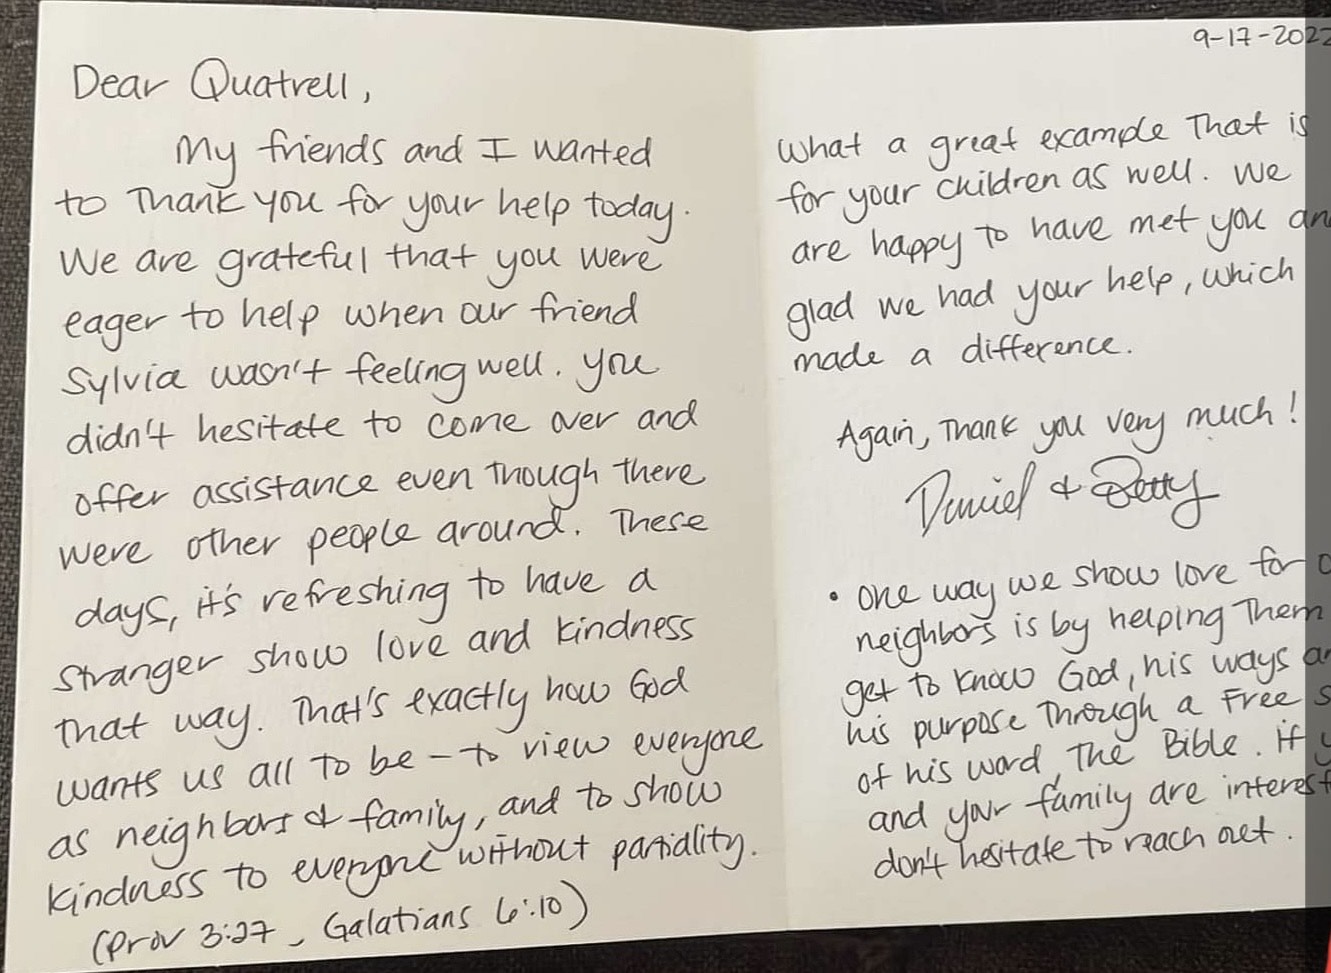 Dear Quatrell,
My friends and I wanted
to Thank you for your help today.
We are grateful that you were
eager to help when our friend
Sylvia wasn't feeling well. You
didn't hesitate to come over and
offer assistance even though there
were other people around. These
days, it's refreshing to have a
stranger show love and kindness
that way. That's exactly how God
wants us all to be - to view everyone
as neighbors & family, and to show
kindness to everyone without partiality.
(Prov 3:27, Galatians 6:10)
9-17-2022
What a great example That is
for your children as well. We
are happy to have met you an
glad we had your help, which
made a difference.
Again, Thank you very much!
Daniel & Betty
• One way we show love for
neighbors is by helping Them
get to know God, his ways
his purpose Through a Free
of his word, The Bible. If
and your family are interest
don't hesitate to reach out.